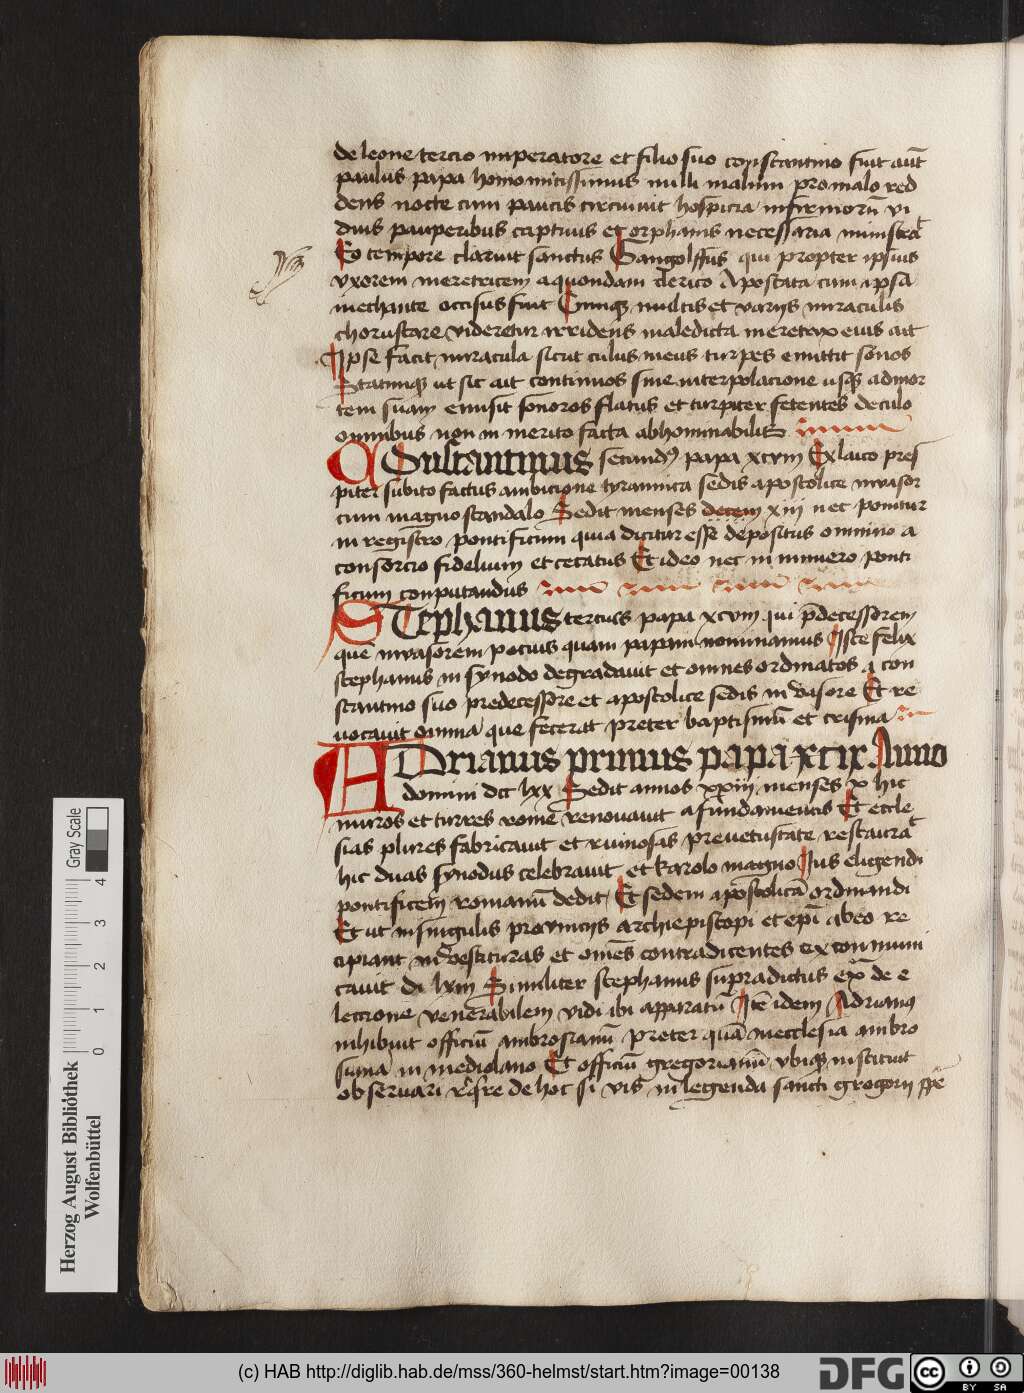 de leone tercio imperatore et filio suo constantino fuit aūt
paulus papa homo mitissimus nulli malum pro malo red
dens nocte cum paucis circuiuit hospicia infirmorū vi
duis pauperibus captiuis et orphanis necessaria ministrās
Eo tempore claruit sanctus Gangolffus qui propter ipsius
vxorem meretricem a quondam clerico Apostata cum ipsa
mechante occisus fuit Cumqꝫ multis et varijs miraculis
choruscare videretur irridens maledicta meretrix eius ait
Ipse facit miracula sicut culus meus turpes emittit sonos
Statimqꝫ ut sic ait continuos sine interpolacione usqꝫ ad mor
tem suam emisit sonoros flatus et turpiter fetentes de culo
omnibus non in merito facta abhominabilis
COnstantinus secundꝰ papa xcvııı Ex laico pres
piter subito factus ambicione tyrannica sedis apostolice inuasor
cum magno scandalo Sedit menses decem xiij nec ponitur
in registro pontificum quia dicitur esse depositus omnino a
consorcio fidelium et cecatus Et ideo nec in numero ponti
ficum conputandus
STephanus tercius papa xcvııı qui p̄decessorem
quē inuasorem pocius quam papam nominamus Iste felix
stephanus in synodo degradauit et omnes ordinatos a con
stantino suo predecessore et apostolice sedis inuasore Et re
uocauit omnia que fecerat preter baptismū et crisma
ADrianus primus papa xcix Anno
domini dcc lxx Sedit annos xxiij menses x hic
muros et turres rome renouauit a fundamentis Et eccle
sias plures fabricauit et ruinosas pre vetustate restaurat
hic duas synodus celebrauit et karolo magno Ius eligendi
pontificem romanū dedit Et sedem apostolicā ordinandi
Et ut in singulis prouincijs archiepiscopi et epī ab eo re
cipiant inuestituras et om̄es contradicentes excommuni
cauit di lxııı Similiter stephanus supradictus exͣ de e
lectione venerabilem vidi ibi apparatū Itē idem Adrianꝰ
inhibuit officiū ambrosianū preter quā in ecclesia ambro
siana in mediolano Et officiū gregorianū vbiqꝫ instituit
obseruari rͤqͥre de hoc si vis in legenda sancti gregorij ppē
Herzog August Bibliothek
Wolfenbüttel
Gray Scale
0 1 2 3 4
(c) HAB http://diglib.hab.de/mss/360-helmst/start.htm?image=00138
DFG
cc
BY SA